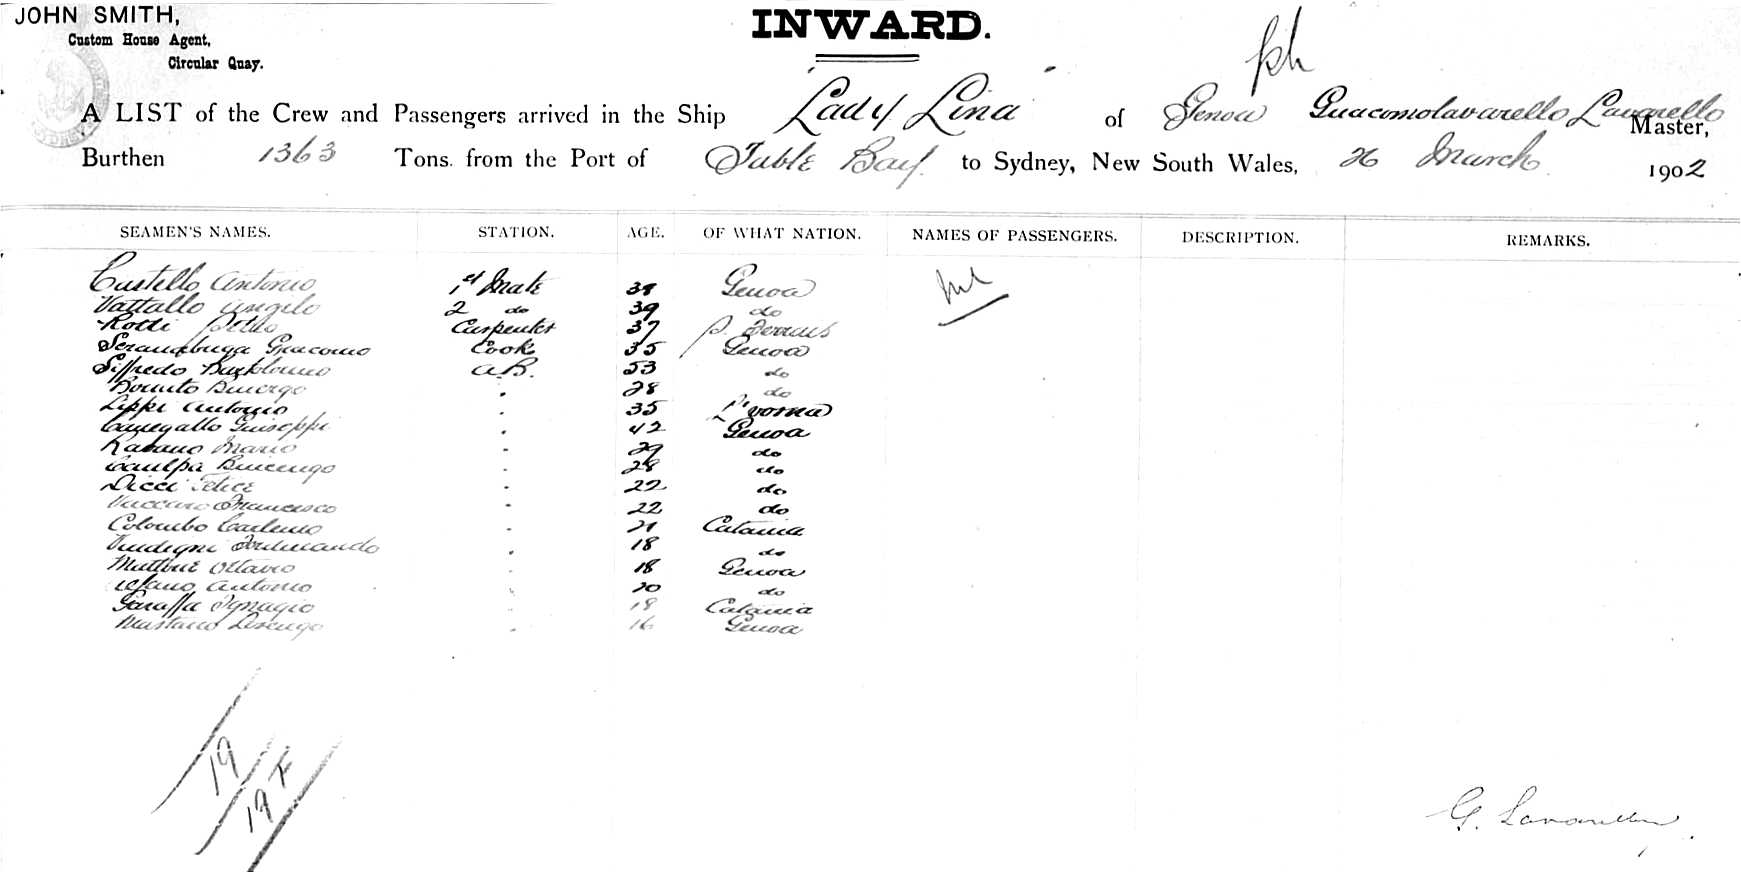 JOHN SMITH,
Custom House Agent,
Circular Quay.
INWARD.
A LIST of the Crew and Passengers arrived in the Ship "Lady Lina" of Genoa Guacomolavarello Lavarello Master,
Burthen 1363 Tons from the Port of Table Bay to Sydney, New South Wales, 26 March 1902
SEAMEN'S NAMES. STATION. AGE. OF WHAT NATION. NAMES OF PASSENGERS. DESCRIPTION. REMARKS.
Custello Antonio 1st Mate Genoa
Vattallo Angelo 2 do 39 do
Carpenter 37
Guacomo Cook 35 Genoa
Siffredo Bartolomeo A.B. 53 do
28 do
Lippi Antonio 35
Canegallo Guiseppi 42 Genoa
Mario 29 do
28 do
Dicci Felice 22 do
Vaccaro Francesco 22 do
Colombo 21 Catania
Ferdinando 18 do
Muttone Ottavio 18 Genoa
Antonio 20 do
Garaffa Ignazio 18 Catania
16 Genoa
19
19 F
G. Lavarello